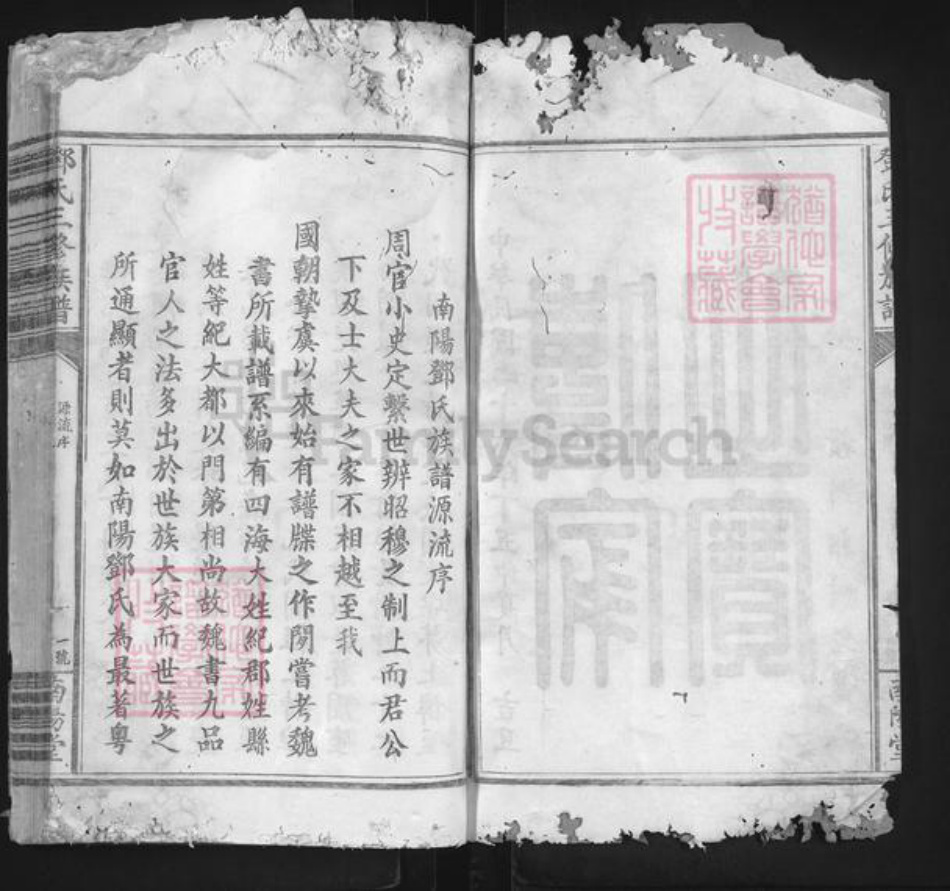 鄧氏三修族譜
南陽堂
猶他家譜學會收藏
FamilySearch
南陽鄧氏族譜源流序
周官小史定繫世辨昭穆之制上而君公
下及士大夫之家不相越至我
國朝摯虞以來始有譜牒之作閱嘗考魏
書所載譜系編有四海大姓紀郡姓縣
姓等紀大都以門第相尚故魏書九品
官人之法多出於世族大家而世族之
所通顯者則莫如南陽鄧氏為最著粵
猶他家譜學會收藏
鄧氏三修族譜
源流序
一號
南陽堂